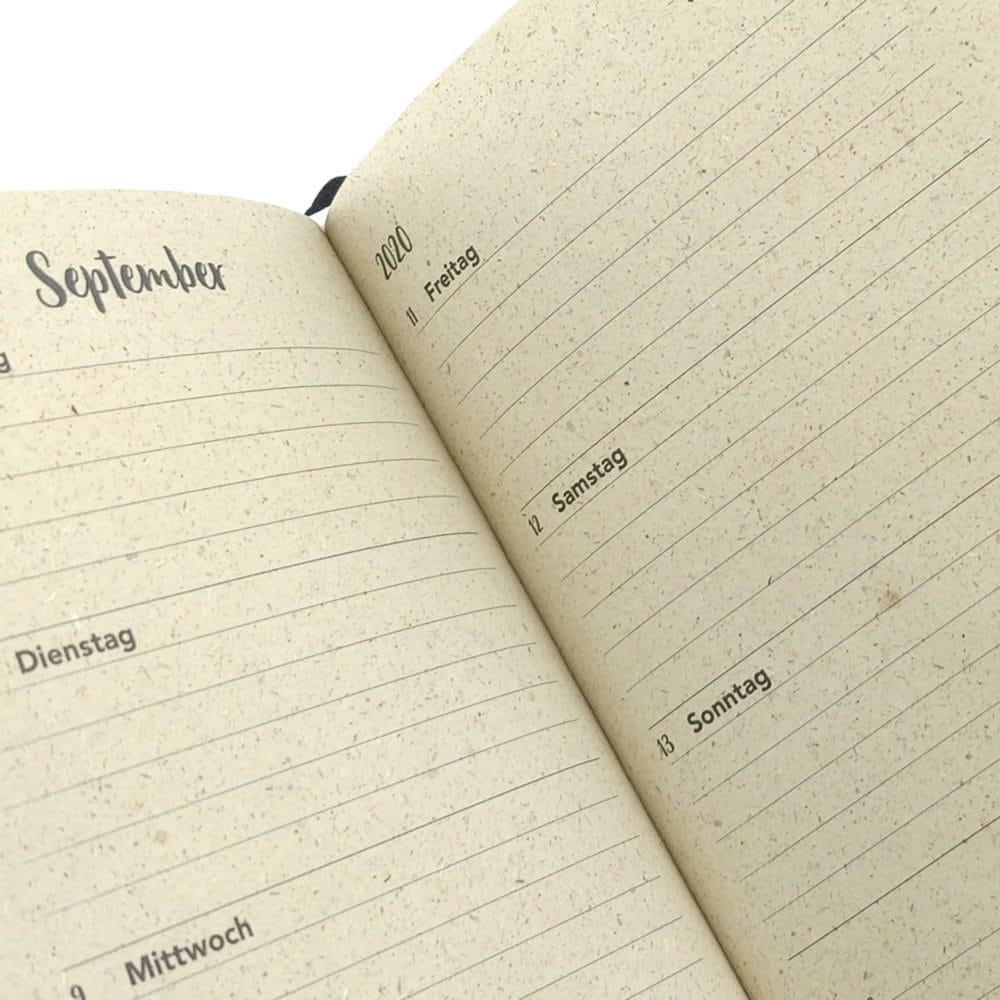 September
Dienstag
9 Mittwoch
2020
11 Freitag
12 Samstag
13 Sonntag